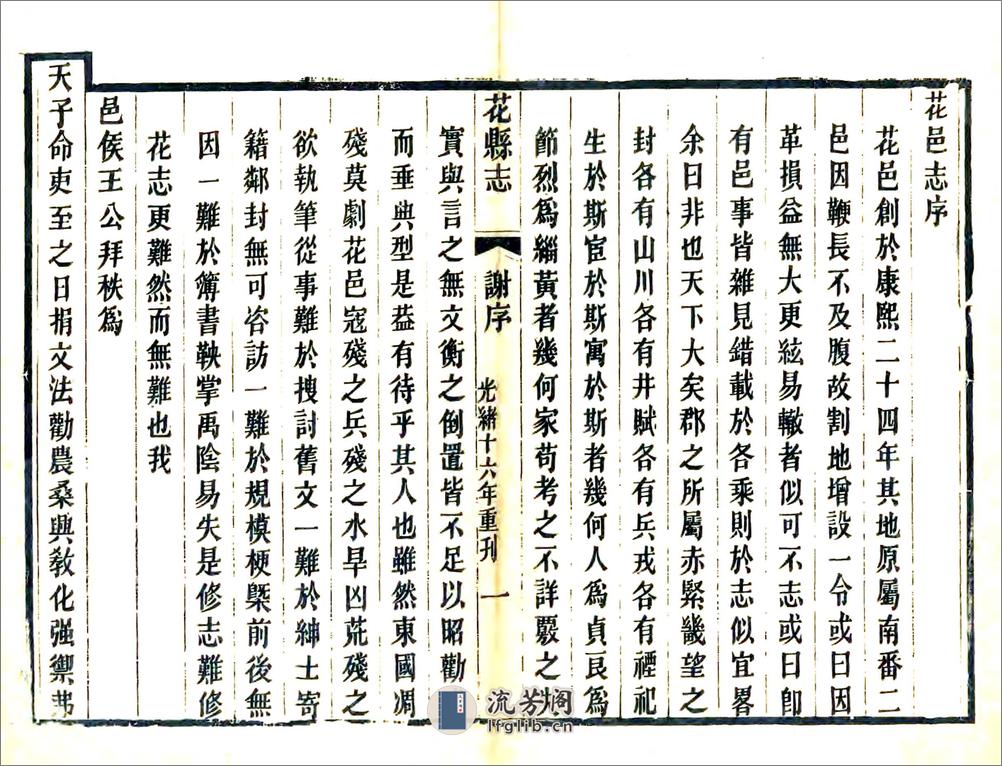 花邑志序
花邑創於康熙二十四年其地原屬南番二
邑因鞭長不及腹故割地增設一令或曰因
革損益無大更絃易轍者似可不志或曰卽
有邑事皆雜見錯載於各乘則於志似宜畧
余曰非也天下大矣郡之所屬赤緊畿望之
封各有山川各有井賦各有兵戎各有禮祀
生於斯宦於斯寓於斯者幾何人爲貞良爲
節烈爲緇黃者幾何家苟考之不詳覈之不
花縣志
謝序
光緒十六年重刊
一
實與言之無文衡之倒置皆不足以昭勸
而垂典型是葢有待乎其人也雖然東國凋
殘莫劇花邑寇殘之兵殘之水旱凶荒殘之
欲執筆從事難於搜討舊文一難於紳士寄
籍鄰封無可咨訪一難於規模梗槩前後無
因一難於簿書鞅掌禹陰易失是修志難修
花志更難然而無難也我
邑侯王公拜秩爲
天子命吏至之日捐文法勸農桑興敎化强禦弗
流芳阁
lfglib.cn